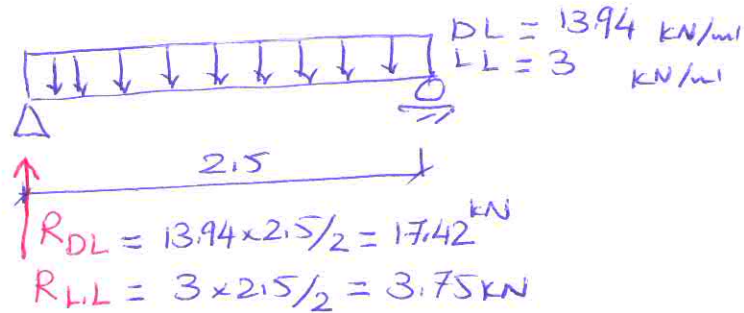 DL = 13.94 kN/ml
LL = 3 kN/ml
2.5
RDL = 13.94x2.5/2 = 17.42 kN
RL.L = 3x2.5/2 = 3.75 kN